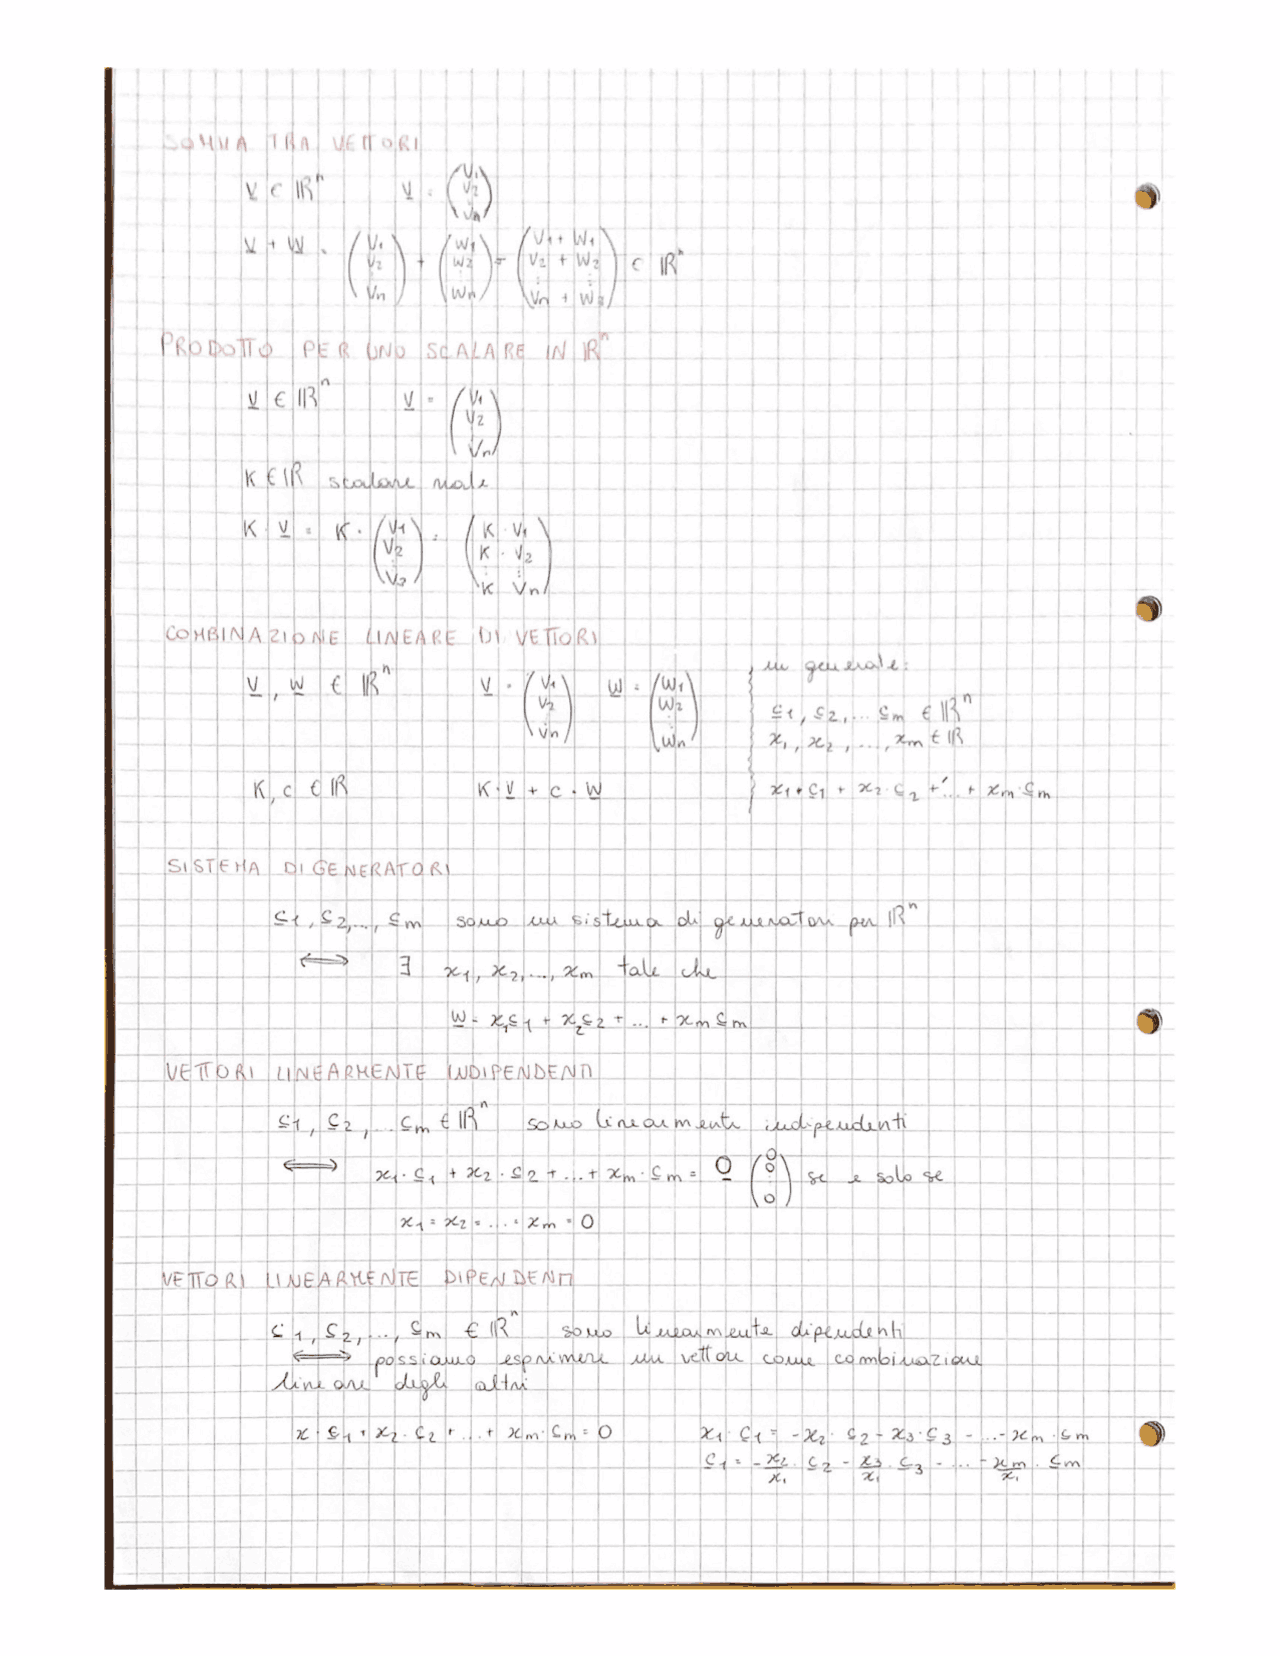 SOMMA TRA VETTORI
v ∈ ℝⁿ   v = (v₁ v₂ ⋮ vₙ)
v + w = (v₁ v₂ ⋮ vₙ) + (w₁ w₂ ⋮ wₙ) = (v₁ + w₁ v₂ + w₂ ⋮ ⋮ vₙ + w₂) ∈ ℝⁿ
PRODOTTO PER UNO SCALARE IN ℝⁿ
v ∈ ℝⁿ   v = (v₁ v₂ ⋮ vₙ)
K ∈ ℝ scalare reale
K · v = K · (v₁ v₂ ⋮ v₂) = (K · v₁ K · v₂ ⋮ ⋮ K vₙ)
COMBINAZIONE LINEARE DI VETTORI
v, w ∈ ℝⁿ   v = (v₁ v₂ ⋮ vₙ)   w = (w₁ w₂ ⋮ wₙ)
K, c ∈ ℝ   K · v + c · w
in generale:
c₁, c₂, ... cₘ ∈ ℝⁿ
x₁, x₂, ..., xₘ ∈ ℝ
x₁ · c₁ + x₂ · c₂ + ... + xₘ · cₘ
SISTEMA DI GENERATORI
c₁, c₂, ..., cₘ sono un sistema di generatori per ℝⁿ
⟺ ∃ x₁, x₂, ..., xₘ tale che
w = x₁c₁ + x₂c₂ + ... + xₘcₘ
VETTORI LINEARMENTE INDIPENDENTI
c₁, c₂, ... cₘ ∈ ℝⁿ sono linearmente indipendenti
⟺ x₁ · c₁ + x₂ · c₂ + ... + xₘ · cₘ = 0 (0 0 ⋮ 0) se e solo se
x₁ = x₂ = ... = xₘ = 0
VETTORI LINEARMENTE DIPENDENTI
c₁, c₂, ..., cₘ ∈ ℝⁿ sono linearmente dipendenti
⟺ possiamo esprimere un vettore come combinazione
lineare degli altri
x · c₁ + x₂ · c₂ + ... + xₘ · cₘ = 0   x₁ · c₁ = -x₂ · c₂ - x₃ · c₃ - ... - xₘ · cₘ
c₁ = -x₂/x₁ · c₂ - x₃/x₁ · c₃ - ... - xₘ/x₁ · cₘ